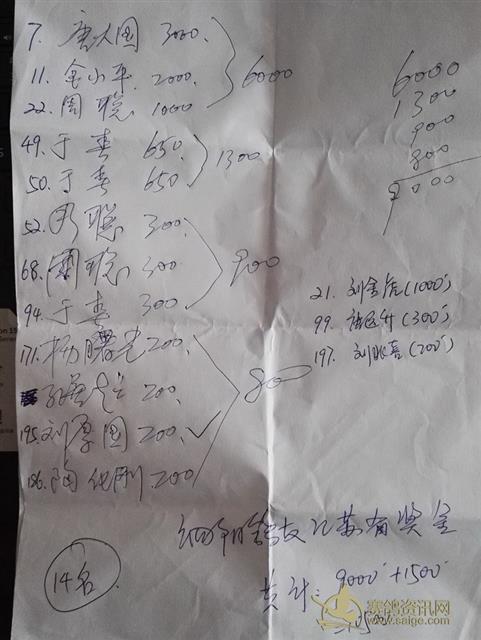 7. 唐大国 3000.
11. 金小平. 2000.
22. 周聪 1000
6000
49. 于春 650
50. 于春 650
1300
52. 周聪 300
68. 周聪 300
94. 于春 300
900
171. 杨曙光 200.
200.
195. 刘厚国 200.
186. 陶化刚. 200
800
6000
1300
900
800
9000
21. 刘金虎 (1000)
99. (300)
197. 刘兆喜 (200)
鸽友 江苏省奖金
共计: 9000 + 1500
14名
赛鸽资讯网
www.saige.com